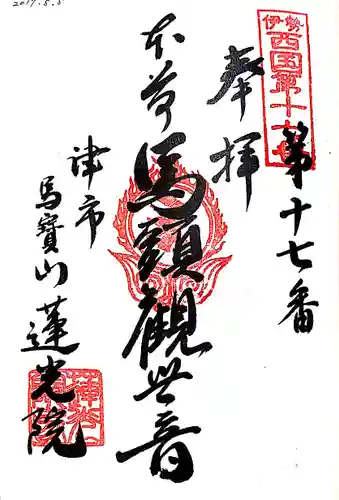 2017.5.5
伊勢
西国第十七番
第十七番
奉拝
本尊
馬頭観世音
津市
馬寶山
蓮光院